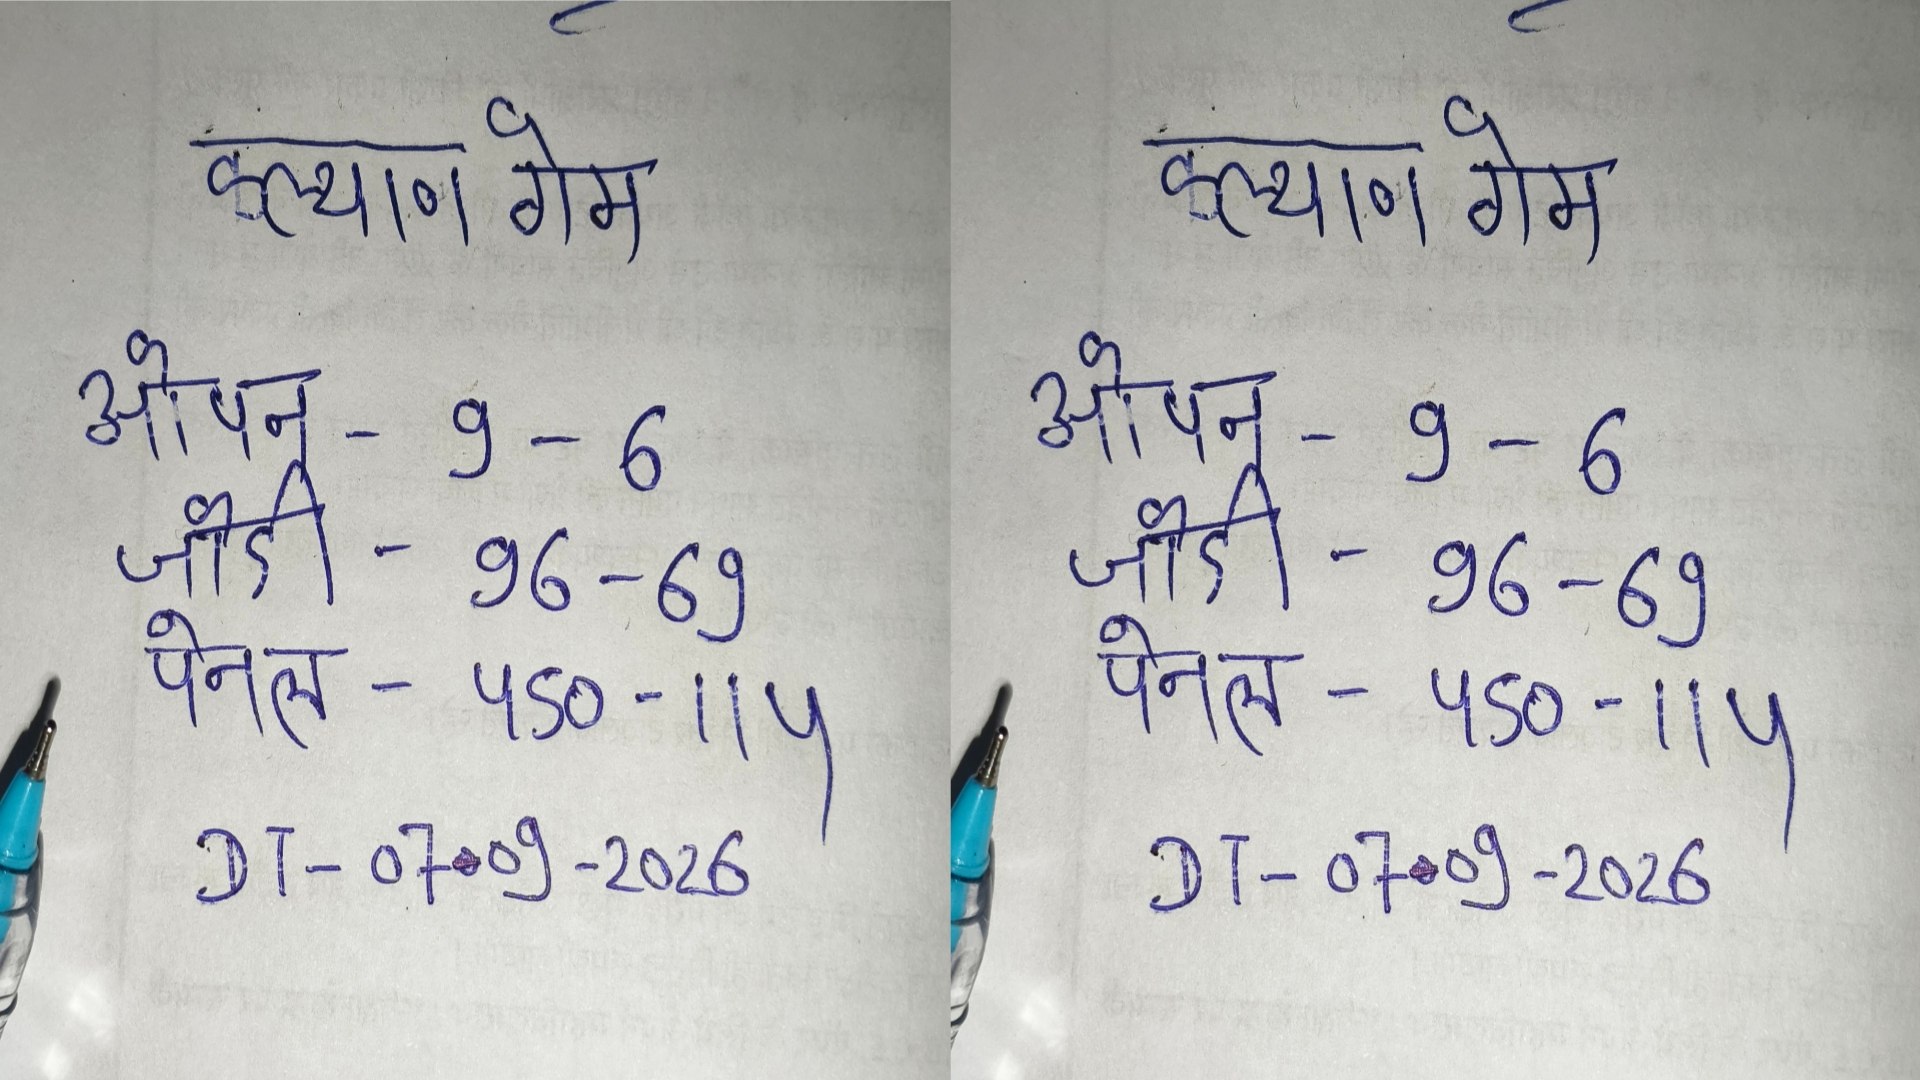 कल्याण गेम
ओपन - 9 - 6
जोडी - 96 - 69
पेनल - 450 - 114
DT - 07-09-2026
कल्याण गेम
ओपन - 9 - 6
जोडी - 96 - 69
पेनल - 450 - 114
DT - 07-09-2026